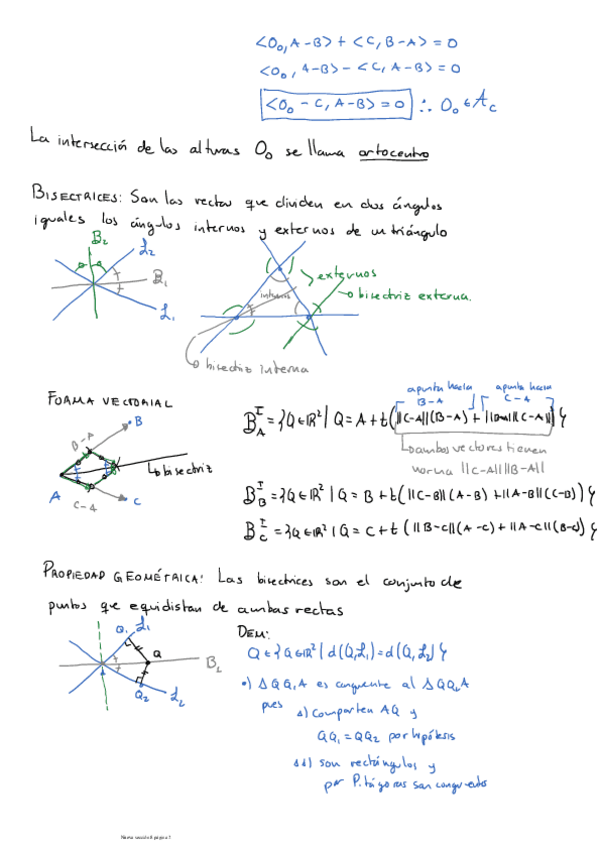 <O₀, A-B> + <C, B-A> = 0
<O₀, A-B> - <C, A-B> = 0
<O₀ - C, A-B> = 0 ∴ O₀ ∈ A_c
La intersección de las alturas O₀ se llama ortocentro
BISECTRICES: Son las rectas que dividen en dos ángulos
iguales los ángulos internos y externos de un triángulo
B₂
L₂
B₁
L₁
externos
internos
bisectriz externa.
bisectriz interna
FORMA VECTORIAL
apunta hacia B-A
apunta hacia C-A
B_A^I = {Q ∈ ℝ² | Q = A + t(||C-A||(B-A) + ||B-A||(C-A)}
ambos vectores tienen
norma ||C-A||||B-A||
B
B-A
bisectriz
A
C-A
C
B_B^I = {Q ∈ ℝ² | Q = B + t(||C-B||(A-B) + ||A-B||(C-B))}
B_C^I = {Q ∈ ℝ² | Q = C + t(||B-C||(A-C) + ||A-C||(B-C)}
PROPIEDAD GEOMÉTRICA: Las bisectrices son el conjunto de
puntos que equidistan de ambas rectas
Q₁
L₁
Q
B₁
Q₂
L₂
DEM:
Q ∈ {Q ∈ ℝ² | d(Q, L₁) = d(Q, L₂)}
•) △QQ₁A es congruente al △QQ₂A
pues
i) comparten AQ y
QQ₁ = QQ₂ por hipótesis
ii) son rectángulos y
por Pitágoras son congruentes